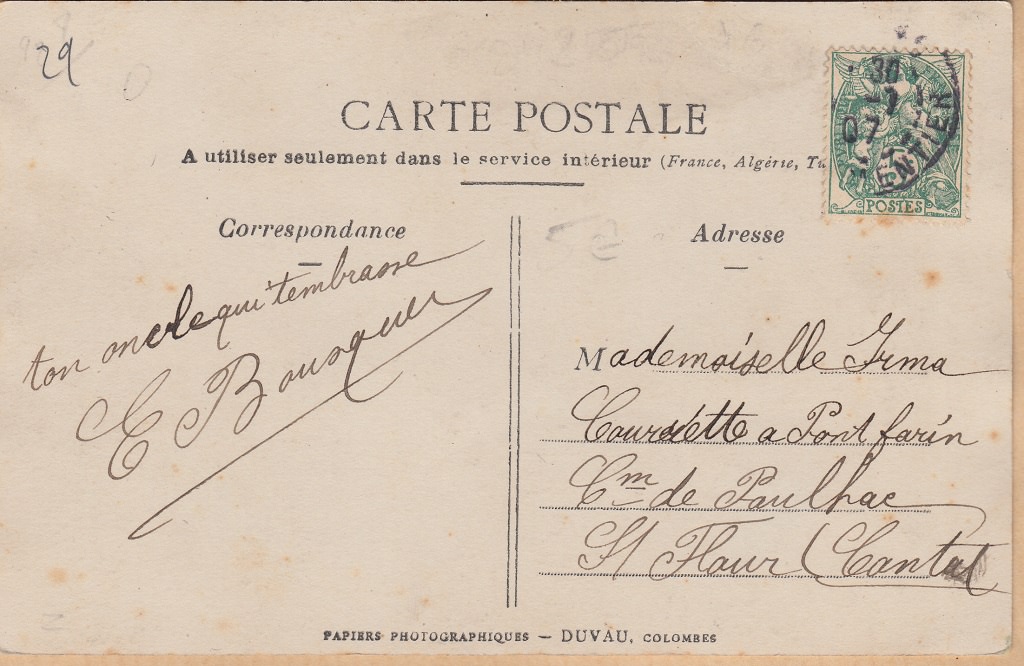 29
CARTE POSTALE
A utiliser seulement dans le service intérieur (France, Algérie, Tu
30
07
POSTES
Correspondance
ton oncle qui t'embrasse
E Bousquet
Adresse
Mademoiselle Irma
Courdette a Pont farin
Cm de Paulhac
St Flour (Cantal
PAPIERS PHOTOGRAPHIQUES — DUVAU, COLOMBES